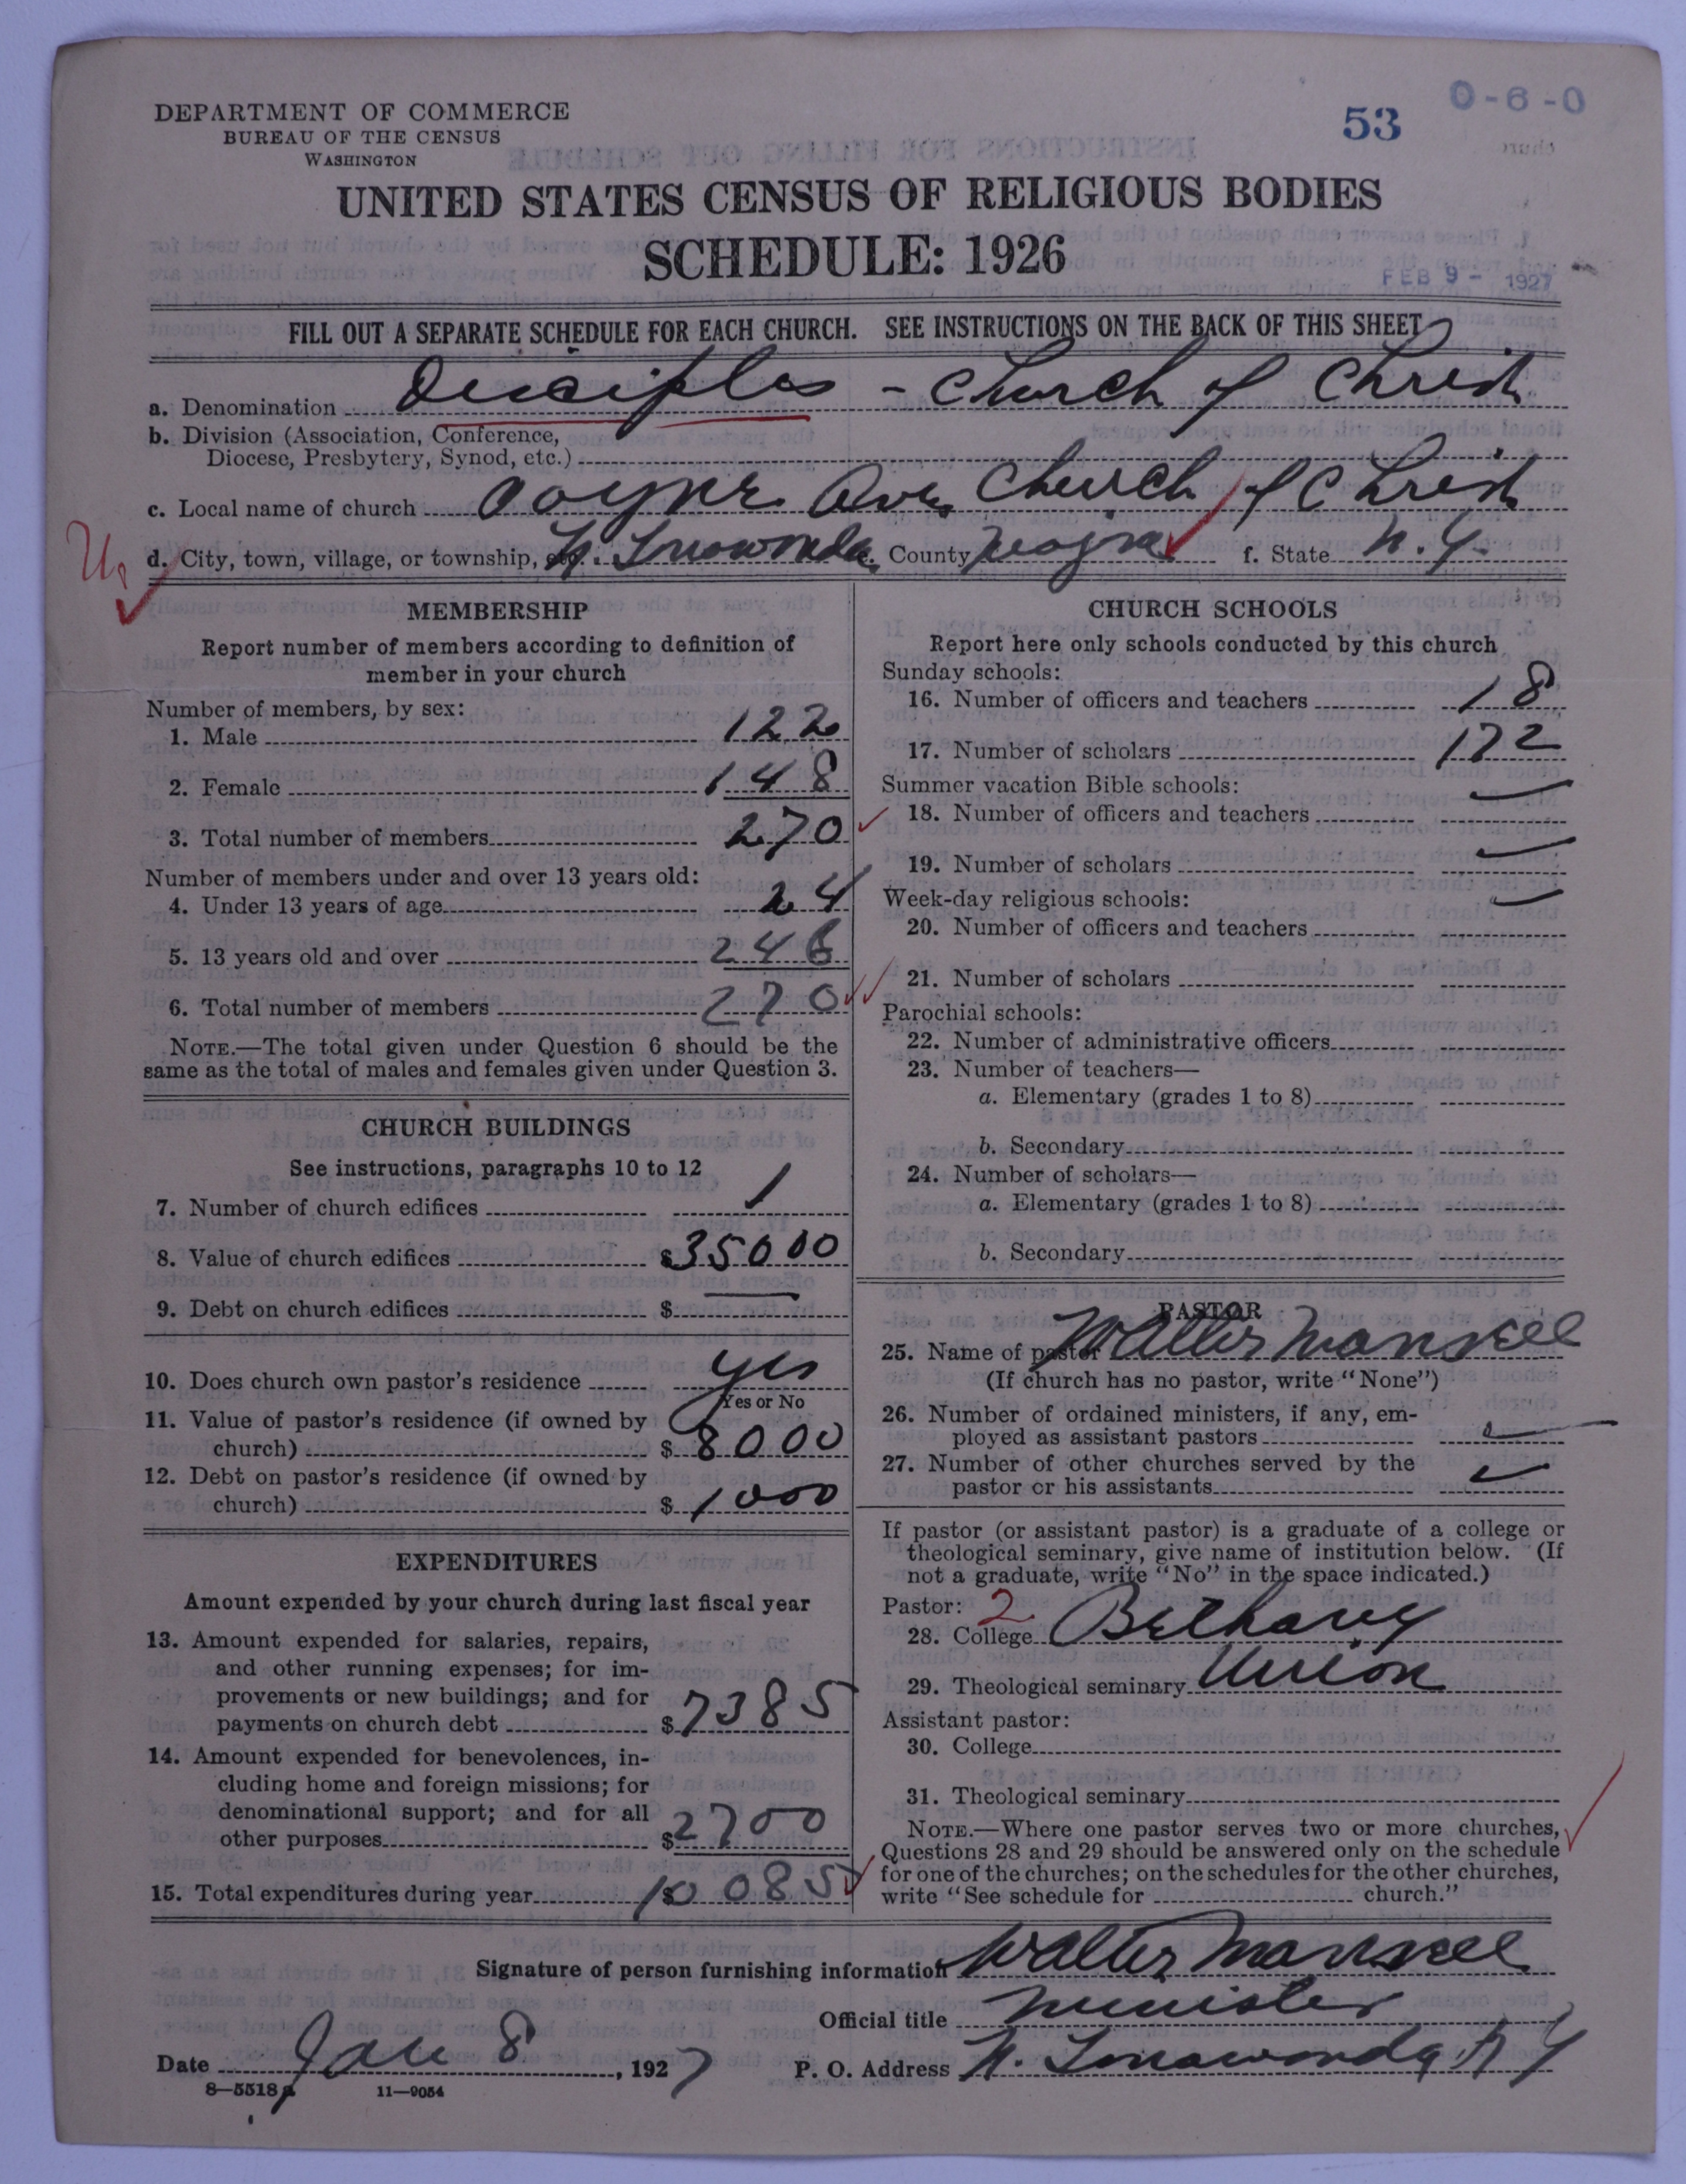 DEPARTMENT OF COMMERCE
BUREAU OF THE CENSUS
WASHINGTON
53
0-6-0
UNITED STATES CENSUS OF RELIGIOUS BODIES
SCHEDULE: 1926
FEB 9 - 1927
FILL OUT A SEPARATE SCHEDULE FOR EACH CHURCH. SEE INSTRUCTIONS ON THE BACK OF THIS SHEET
a. Denomination Disciples - Church of Christ
b. Division (Association, Conference,
Diocese, Presbytery, Synod, etc.)
c. Local name of church Payne Ave Church of Christ
d. City, town, village, or township, etc. N. Tonawanda e. County Niagra f. State N. Y.
MEMBERSHIP
Report number of members according to definition of
member in your church
Number of members, by sex:
1. Male 122
2. Female 148
3. Total number of members 270
Number of members under and over 13 years old:
4. Under 13 years of age 24
5. 13 years old and over 246
6. Total number of members 270
NOTE.—The total given under Question 6 should be the
same as the total of males and females given under Question 3.
CHURCH BUILDINGS
See instructions, paragraphs 10 to 12
7. Number of church edifices 1
8. Value of church edifices $35000
9. Debt on church edifices $
10. Does church own pastor's residence yes
Yes or No
11. Value of pastor's residence (if owned by
church) $8000
12. Debt on pastor's residence (if owned by
church) $1000
EXPENDITURES
Amount expended by your church during last fiscal year
13. Amount expended for salaries, repairs,
and other running expenses; for im-
provements or new buildings; and for
payments on church debt $7385
14. Amount expended for benevolences, in-
cluding home and foreign missions; for
denominational support; and for all
other purposes $2700
15. Total expenditures during year $10085
CHURCH SCHOOLS
Report here only schools conducted by this church
Sunday schools:
16. Number of officers and teachers 18
17. Number of scholars 172
Summer vacation Bible schools:
18. Number of officers and teachers
19. Number of scholars
Week-day religious schools:
20. Number of officers and teachers
21. Number of scholars
Parochial schools:
22. Number of administrative officers
23. Number of teachers—
a. Elementary (grades 1 to 8)
b. Secondary
24. Number of scholars—
a. Elementary (grades 1 to 8)
b. Secondary
PASTOR
25. Name of pastor Walter Mansell
(If church has no pastor, write "None")
26. Number of ordained ministers, if any, em-
ployed as assistant pastors
27. Number of other churches served by the
pastor or his assistants
If pastor (or assistant pastor) is a graduate of a college or
theological seminary, give name of institution below. (If
not a graduate, write "No" in the space indicated.)
Pastor: 2
28. College Bethany
29. Theological seminary Union
Assistant pastor:
30. College
31. Theological seminary
NOTE.—Where one pastor serves two or more churches,
Questions 28 and 29 should be answered only on the schedule
for one of the churches; on the schedules for the other churches,
write "See schedule for church."
Signature of person furnishing information Walter Mansell
Official title Minister
Date Jan 8, 1927 P. O. Address N. Tonawanda N Y
8—5518a 11—9054